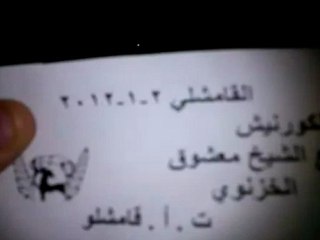 القامشلي ٢-١-٢٠١٢
الكورنيش
الشيخ معشوق
الخزنوي
ت . أ . قامشلو